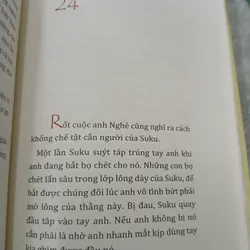 24
Rốt cuộc anh Nghé cũng nghĩ ra cách
không chế tật cắn người của Suku.
Một lần Suku suýt táp trúng tay anh khi
anh đang bắt bọ chét cho nó. Những con bọ
chét lẩn sâu trong lớp lông dày của Suku, để
bắt được chúng đôi lúc anh vô tình bứt phải
mớ lông của thằng này. Bị đau, Suku quay
đầu táp vào tay anh. Nếu anh không bị nó
cắn phải là nhờ anh nhanh mắt kịp dùng tay
kia ghìm được đầu nó.